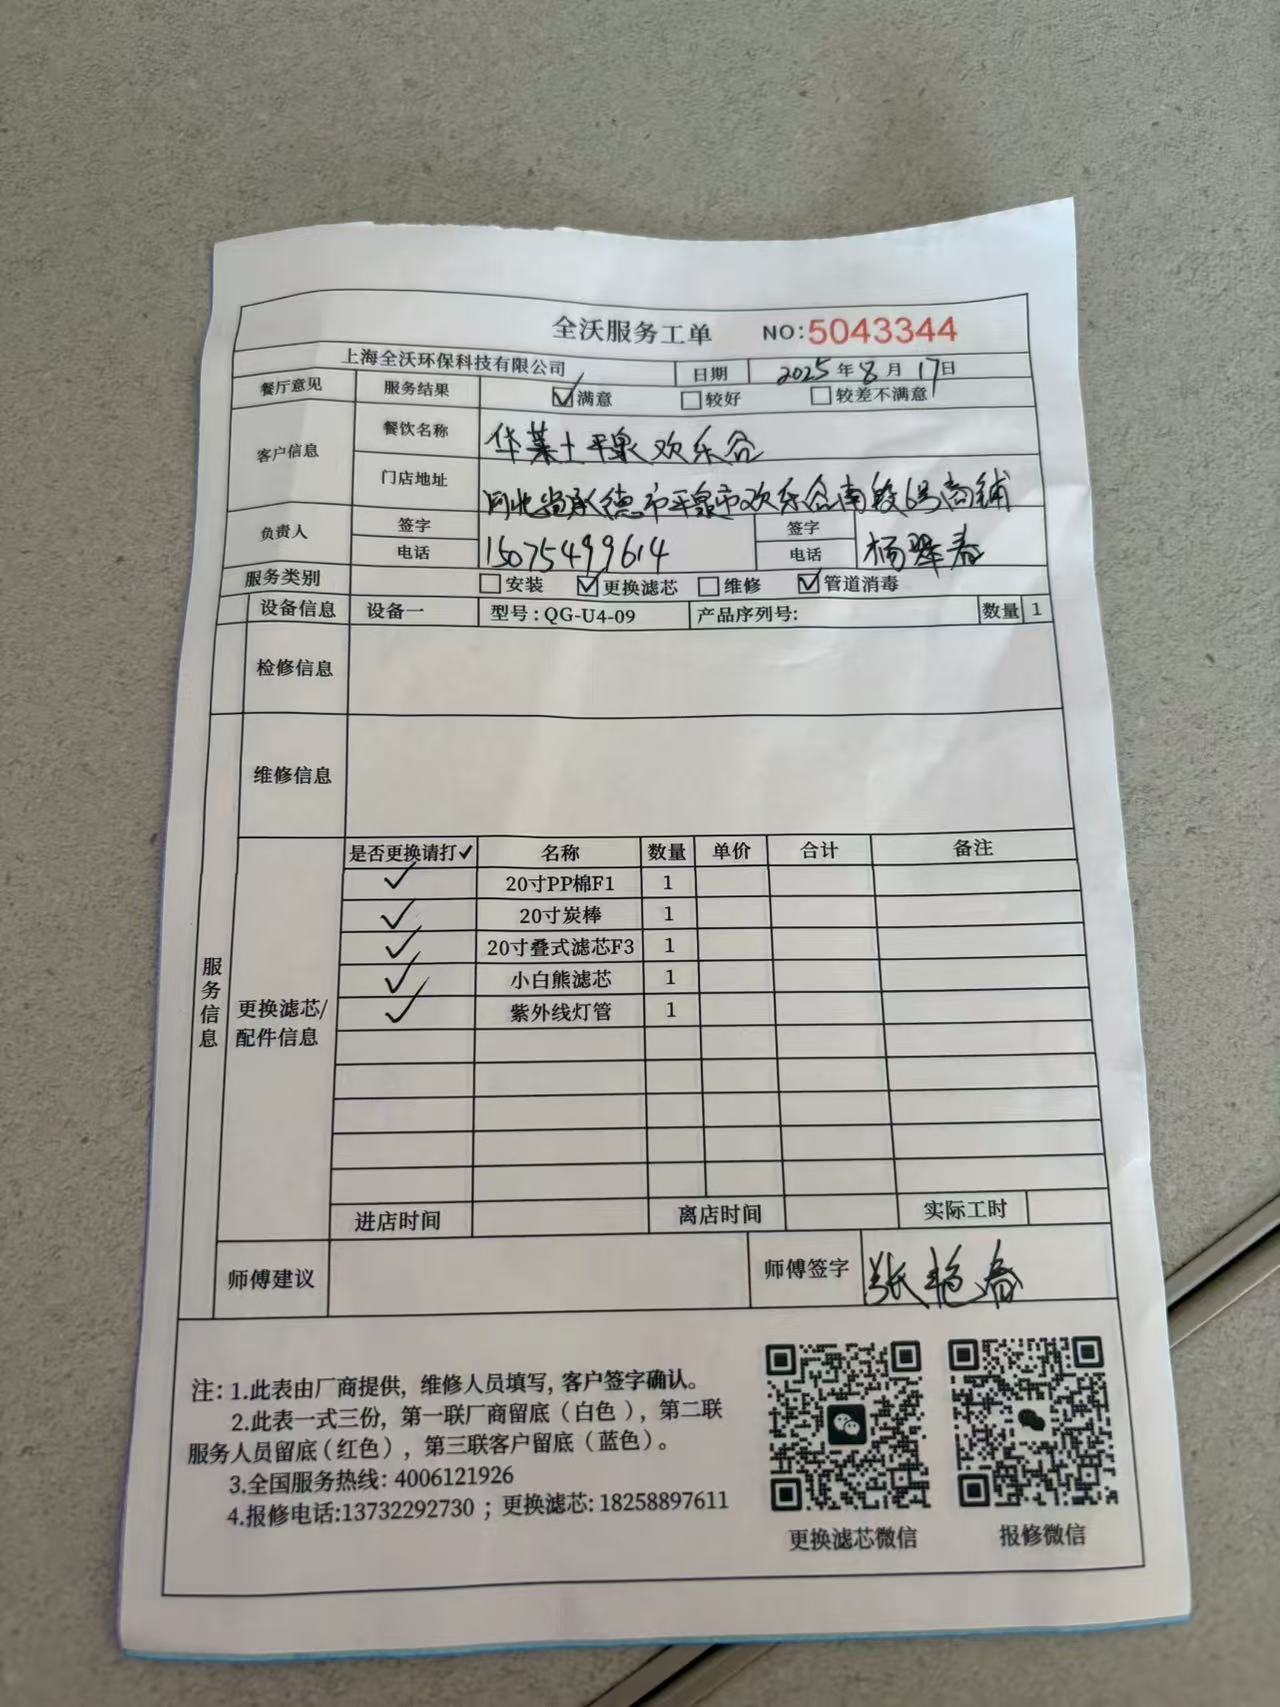 全沃服务工单 NO:5043344
上海全沃环保科技有限公司 日期 2025年8月17日
餐厅意见 服务结果 ☑满意 □较好 □较差不满意
客户信息 餐饮名称 华莱士平泉欢乐谷
门店地址 河北省承德市平泉市欢乐谷南段6号商铺
负责人 签字 签字
电话 15075499614 电话 杨翠春
服务类别 □安装 ☑更换滤芯 □维修 ☑管道消毒
设备信息 设备一 型号:QG-U4-09 产品序列号: 数量 1
检修信息
维修信息
服务信息
更换滤芯/配件信息
是否更换请打✓ 名称 数量 单价 合计 备注
✓ 20寸PP棉F1 1
✓ 20寸炭棒 1
✓ 20寸叠式滤芯F3 1
✓ 小白熊滤芯 1
✓ 紫外线灯管 1
进店时间 离店时间 实际工时
师傅建议 师傅签字 张艳春
注: 1.此表由厂商提供, 维修人员填写, 客户签字确认。
2.此表一式三份, 第一联厂商留底(白色), 第二联
服务人员留底(红色), 第三联客户留底(蓝色)。
3.全国服务热线: 4006121926
4.报修电话:13732292730 ; 更换滤芯: 18258897611
更换滤芯微信 报修微信